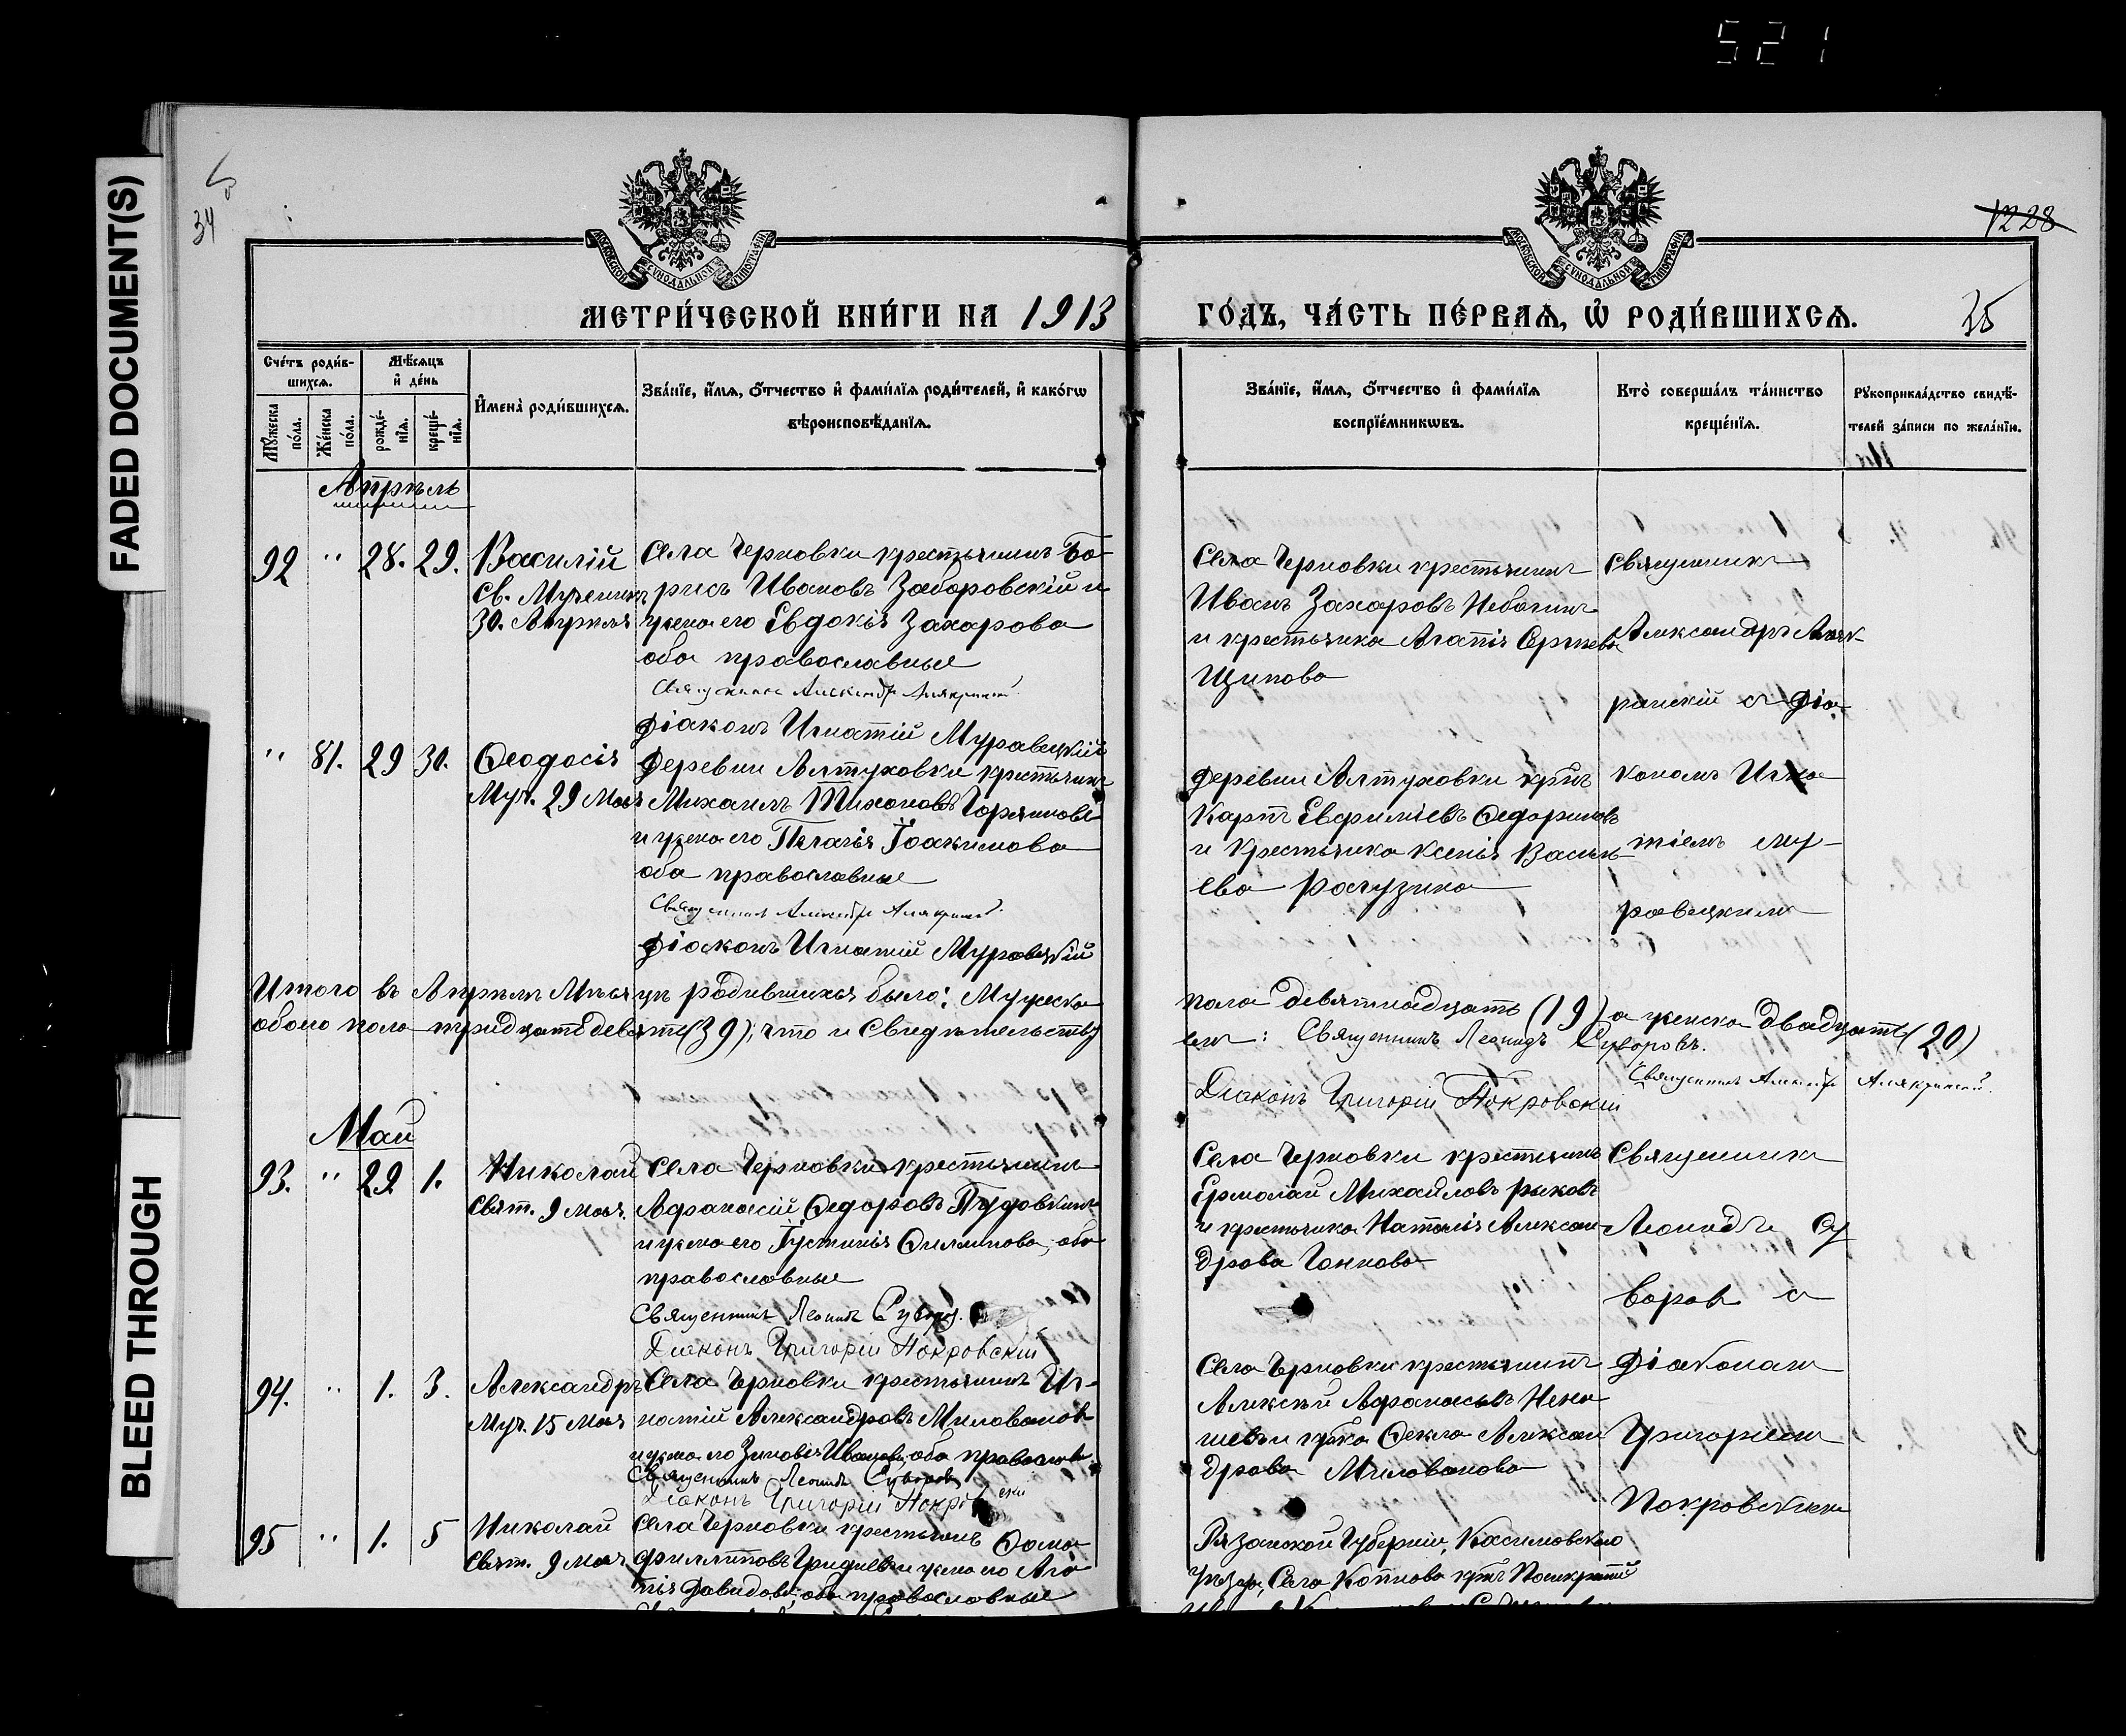 521
FADED DOCUMENT(S)
BLEED THROUGH
34
1228
МОСКОВСКОЙ СѴНОДАЛЬНОЙ ТИПОГРАФІИ
МОСКОВСКОЙ СѴНОДАЛЬНОЙ ТИПОГРАФІИ
МЕТРИ́ЧЕСКОЙ КНИ́ГИ НА 1913
ГО́ДЪ, ЧА́СТЬ ПЕ́РВАѦ, Ѡ҆ РОДИ́ВШИХСѦ.
35
Сче́тъ роди́вшихсѧ.
Мѣ́сѧцъ и҆ де́нь
Мꙋ́жеска по́ла.
Же́нска по́ла.
рожде́нїѧ.
креще́нїѧ.
И҆мена̀ роди́вшихсѧ.
Зва́нїе, и҆́мѧ, ѻ҆́тчество и҆ фами́лїѧ роди́телей, и҆ како́гѡ
вѣроисповѣ́данїѧ.
Зва́нїе, и҆́мѧ, ѻ҆́тчество и҆ фами́лїѧ
воспрїе́мникѡвъ.
Кто̀ соверша́лъ та́инство
креще́нїѧ.
Рꙋкоприкла́дство свидѣ́-
телей за́писи по жела́нїю.
Апрѣль
92 " 28. 29. Василій
Св. Мученик
30. Апрѣля
Села Черновки крестьянинъ Бо-
рисъ Ивановъ Заборовскій и
жена его Евдокія Захарова
оба православные
Священникъ Александръ Алякринскій
Діаконъ Игнатій Муравецкій
Села Черновки крестьянинъ
Иванъ Захаровъ
и крестьянка Агапія Сергѣева
Щипова
Священникъ
Александръ Аляк
ринскій съ Діа-
кономъ Игна
тіемъ Му-
равецкимъ
" 81. 29 30. Ѳеодосія
Муч. 29 Мая
Деревни Алтуховки крестьянинъ
Михаилъ Тихоновъ Горяиновъ
и жена его Пелагія Іоакимова
оба православные
Священникъ Александръ Алякринскій
Діаконъ Игнатій Муравецкій
Деревни Алтуховки крнъ
Карпъ Евфиміевъ
и крестьянка Ксенія Василь
ева Рагузина
Итого въ Апрѣлѣ Мѣсяцѣ родившихся было: Мужеска
пола девятнадцать (19) а женска двадцать (20)
обоего пола тридцать девять (39); что и свидѣтельству
емъ: Священникъ Леонидъ Суворовъ.
Священникъ Александръ Алякринскій
Діаконъ Григорій Покровскій
Май
93. " 29. 1. Николай
Свят. 9 мая.
Села Черновки крестьянинъ
Афанасій Ѳедоровъ Пудовкинъ
и жена его Іустинія Филиппова, оба
православные
Священникъ Леонидъ Суворов.
Діаконъ Григорій Покровскій
Села Черновки крестьянинъ
Ермолай Михайловъ Рыковъ
и крестьянка Наталія Алексан
дрова Ганкова
Священникъ
Леонидъ Су
воровъ съ
Діакономъ
Григоріемъ
Покровскимъ
94. " 1. 3. Александръ
Муч. 15 Мая
Села Черновки крестьянинъ Иг-
натій Александровъ Миловановъ
и жена его Зиновія Иванова, оба православн.
Священникъ Леонидъ Суворовъ
Діаконъ Григорій Покровскій
Села Черновки крестьянинъ
Алексѣй Афанасьевъ Нена
шевъ и крка Ѳекла Алексан
дрова Милованова
95 " 1. 5 Николай
Свят. 9 Мая
Села Черновки крестьянинъ Ѳома
Филипповъ Гридневъ и жена его Ага
пія Давидова, оба православные
Рязанской Губерніи, Касимовскаго
Уѣзда, Села Копнова крнъ Панкратій